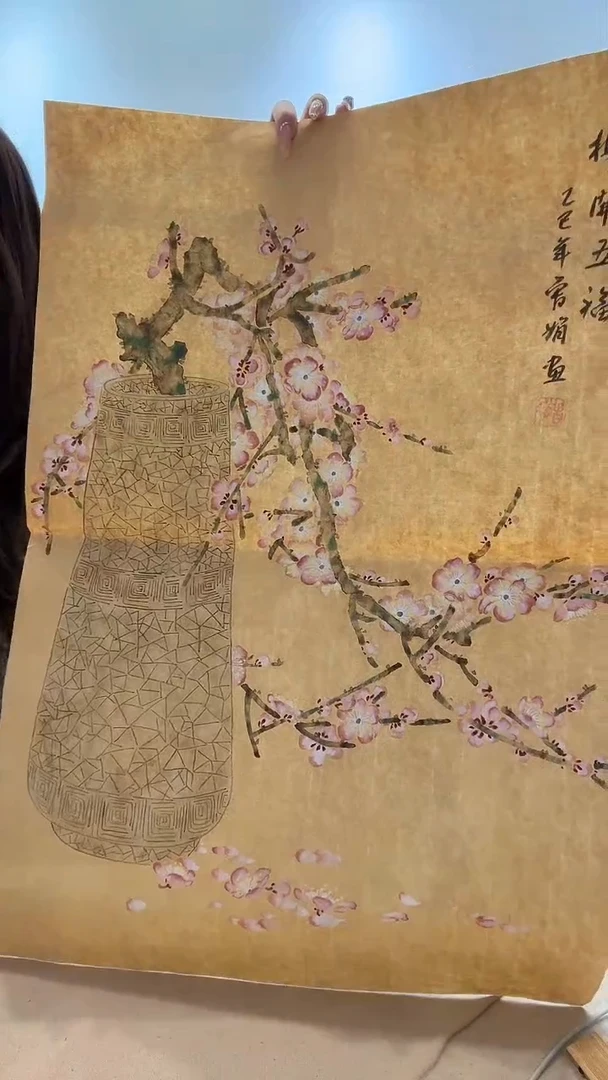 梅開五福
乙巳年 娟画